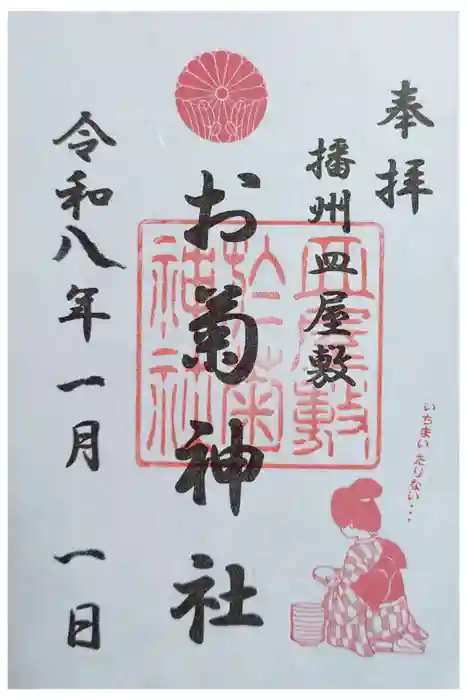 奉拝
播州皿屋敷
お菊神社
令和八年一月一日
皿屋敷
於菊
神社
いちまいたりない・・・